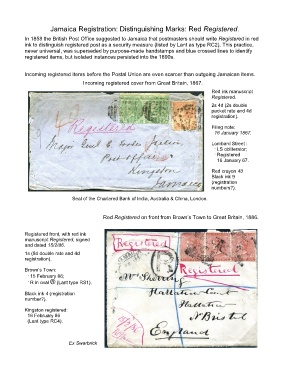 Jamaica Registration: Distinguishing Marks: Red Registered.
In 1858 the British Post Office suggested to Jamaica that postmasters should write Registered in red
ink to distinguish registered post as a security measure (listed by Lant as type RC2). This practice,
never universal, was superseded by purpose-made handstamps and blue crossed lines to identify
registered items, but isolated instances persisted into the 1890s.
Incoming registered items before the Postal Union are even scarcer than outgoing Jamaican items.
Incoming registered cover from Great Britain, 1867.
Red ink manuscript
Registered.
2s 4d (2s double
packet rate and 4d
registration).
Filing note:
16 January 1867.
Lombard Street:
LS obliterator;
Registered
16 January 67.
Red crayon 43
Black ink 9
(registration
numbers?).
Registered
Major Genl
Post office
Kingston
Jamaica
Seal of the Chartered Bank of India, Australia & China, London.
Red Registered on front from Brown's Town to Great Britain, 1886.
Registered front, with red ink
manuscript Registered, signed
and dated 15/2/86.
1s (8d double rate and 4d
registration).
Brown's Town:
15 February 86;
R in oval (Lant type RS1).
Black ink 4 (registration
number?).
Kingston registered:
16 February 86
(Lant type RC4).
Ex Swarbrick
Registered
Registered
Mrs Sherring
Hallatrow Court
Hallatrow
N Bristol
England